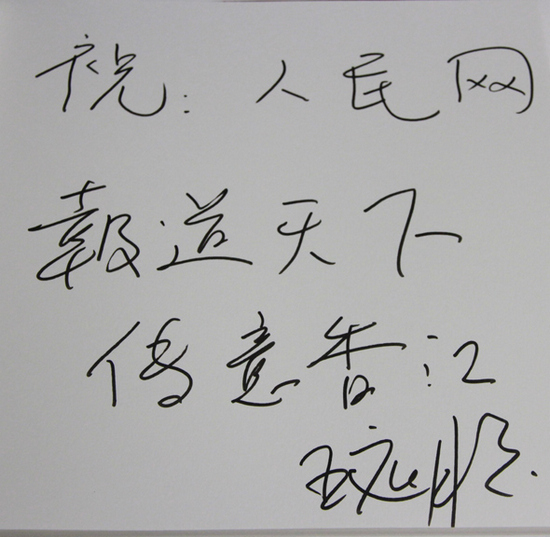 祝：人民网
報道天下
传意香江